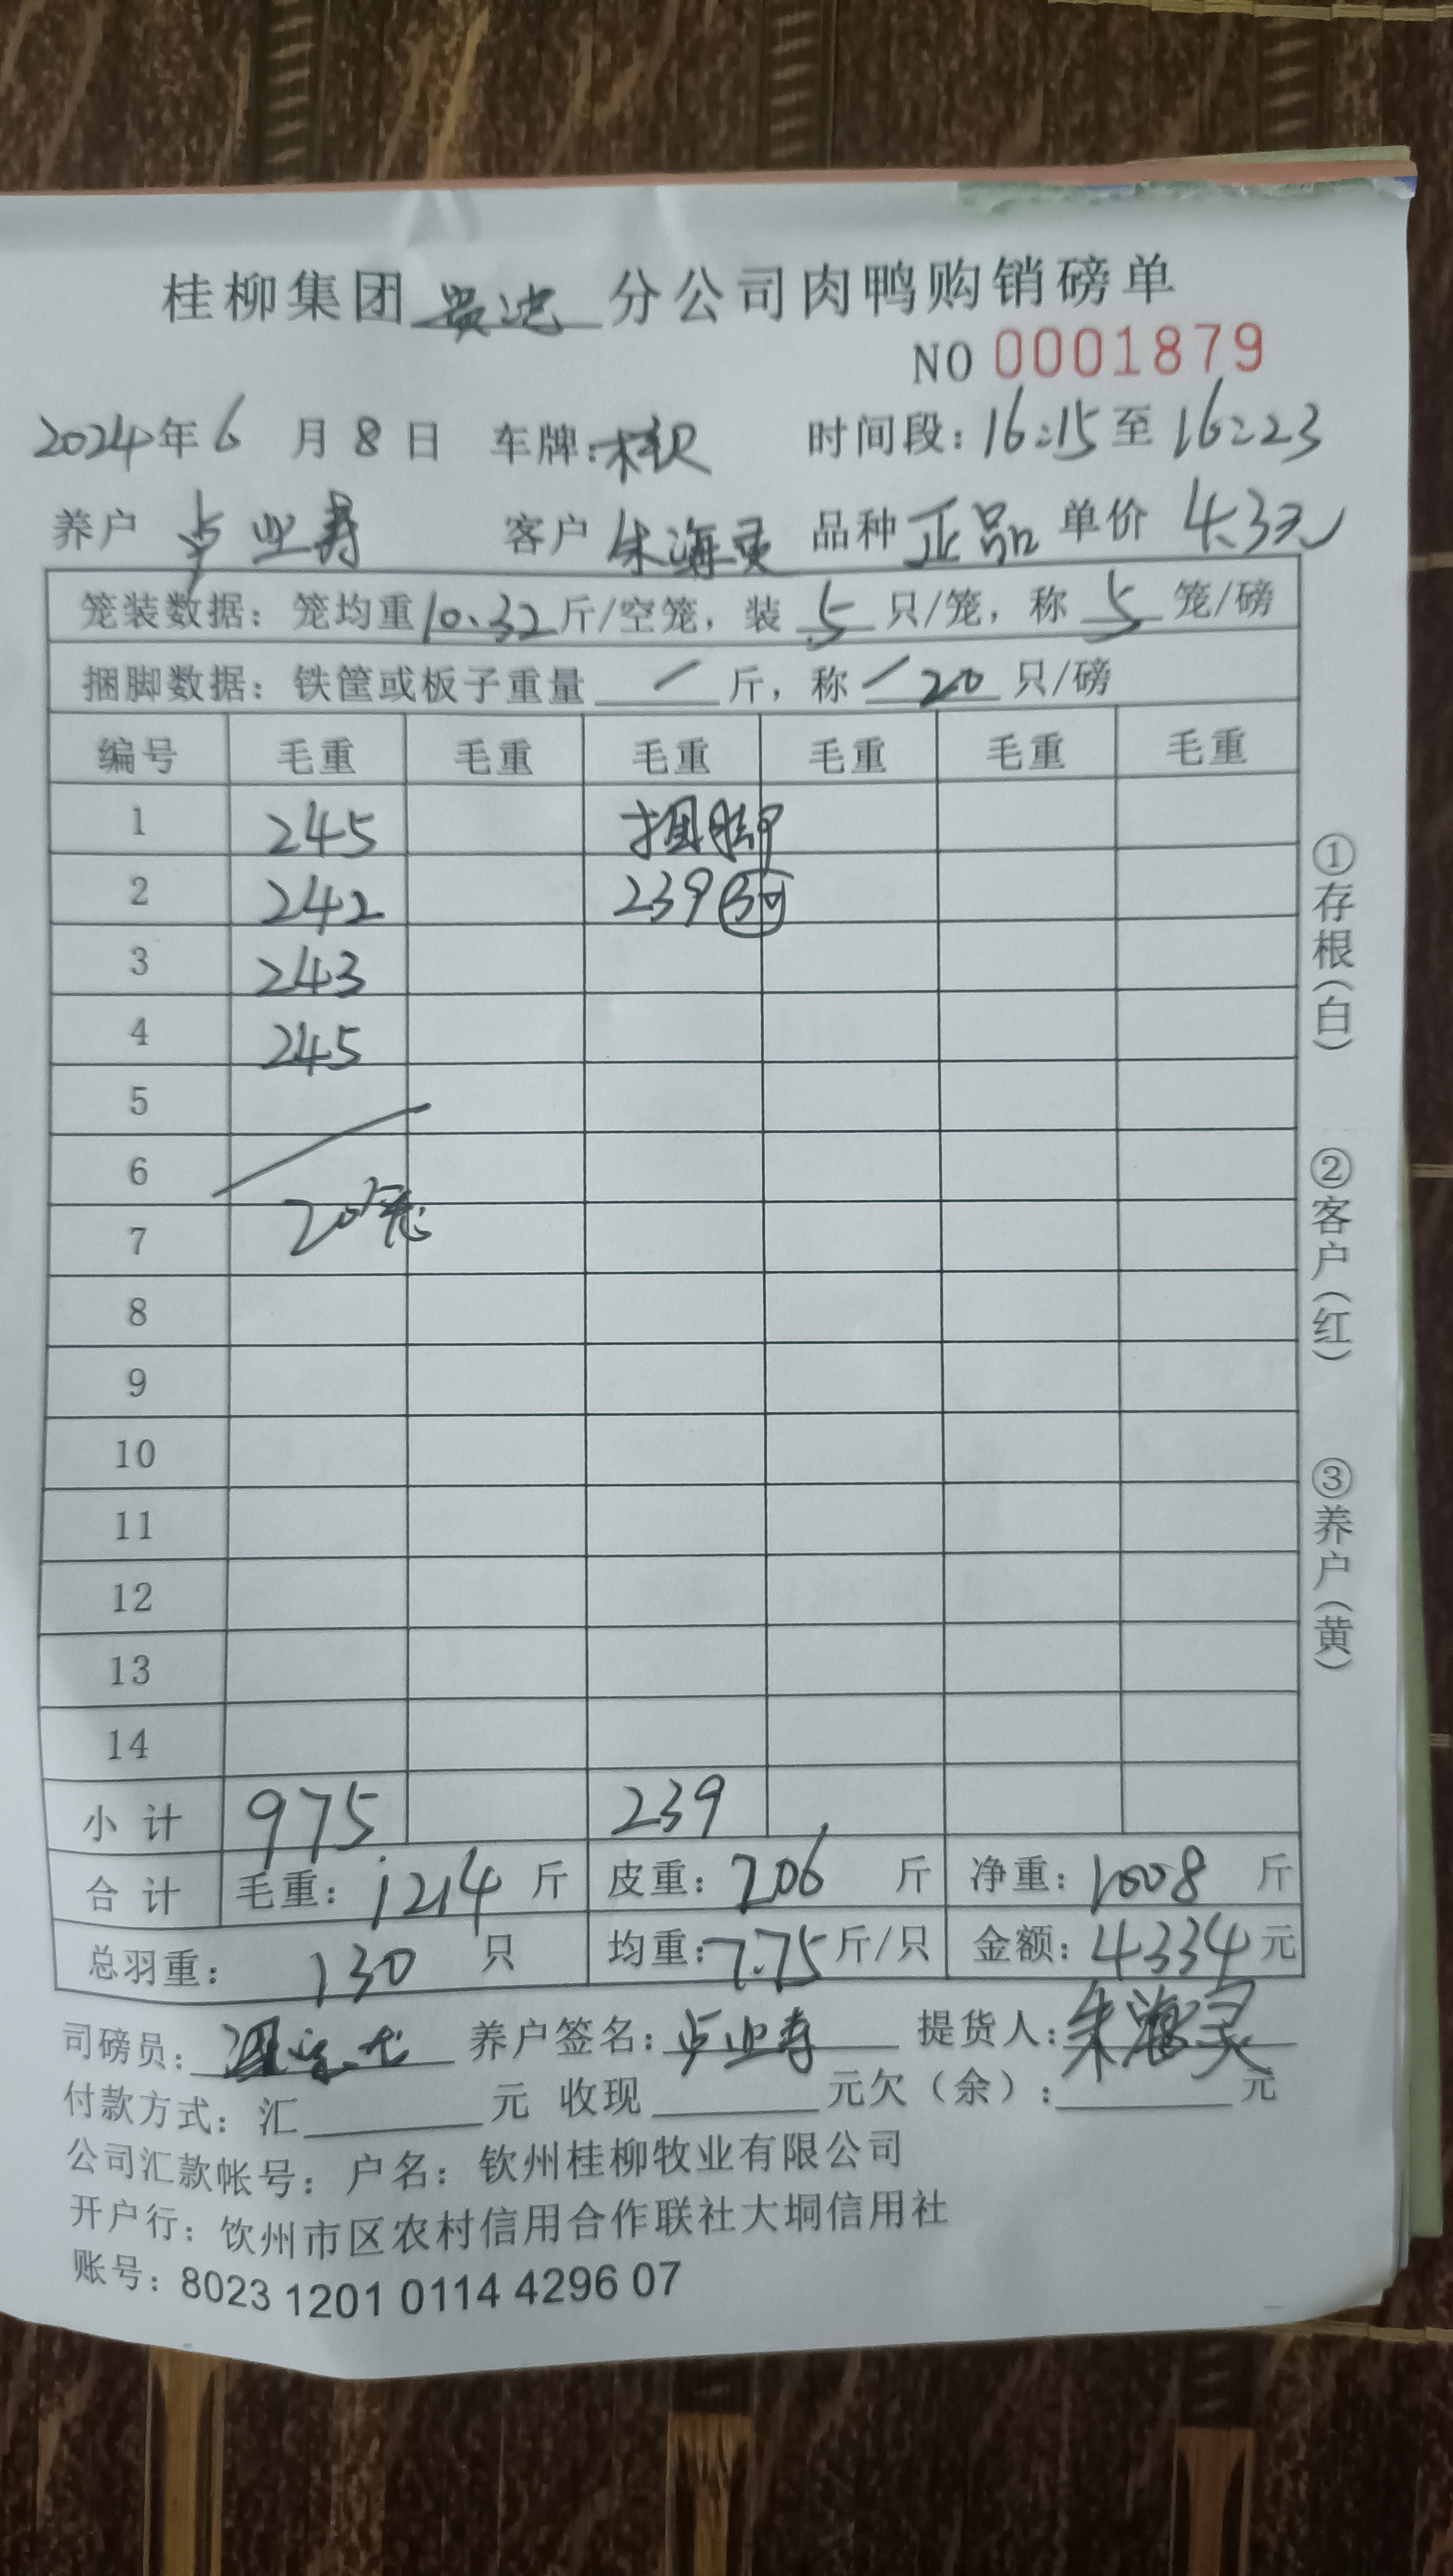 桂柳集团贵港分公司肉鸭购销磅单
NO 0001879
2024年6月8日 车牌: 时间段:16:15至16:23
养户 卢业寿 客户 朱海灵 品种 正品 单价 4.3元
笼装数据: 笼均重10.32斤/空笼, 装5只/笼, 称5笼/磅
捆脚数据: 铁筐或板子重量/斤, 称/20只/磅
编号 毛重 毛重 毛重 毛重 毛重 毛重
1 245 捆脚
2 242 239
3 243
4 245
5
6
7 20笼
8
9
10
11
12
13
14
小计 975 239
合计 毛重:1214斤 皮重:206斤 净重:1008斤
总羽重: 130只 均重:7.75斤/只 金额:4334元
司磅员: 养户签名:卢业寿 提货人:朱海灵
付款方式: 汇 元 收现 元欠(余): 元
公司汇款帐号: 户名: 钦州桂柳牧业有限公司
开户行: 钦州市区农村信用合作联社大垌信用社
账号: 8023 1201 0114 4296 07
①存根(白)
②客户(红)
③养户(黄)